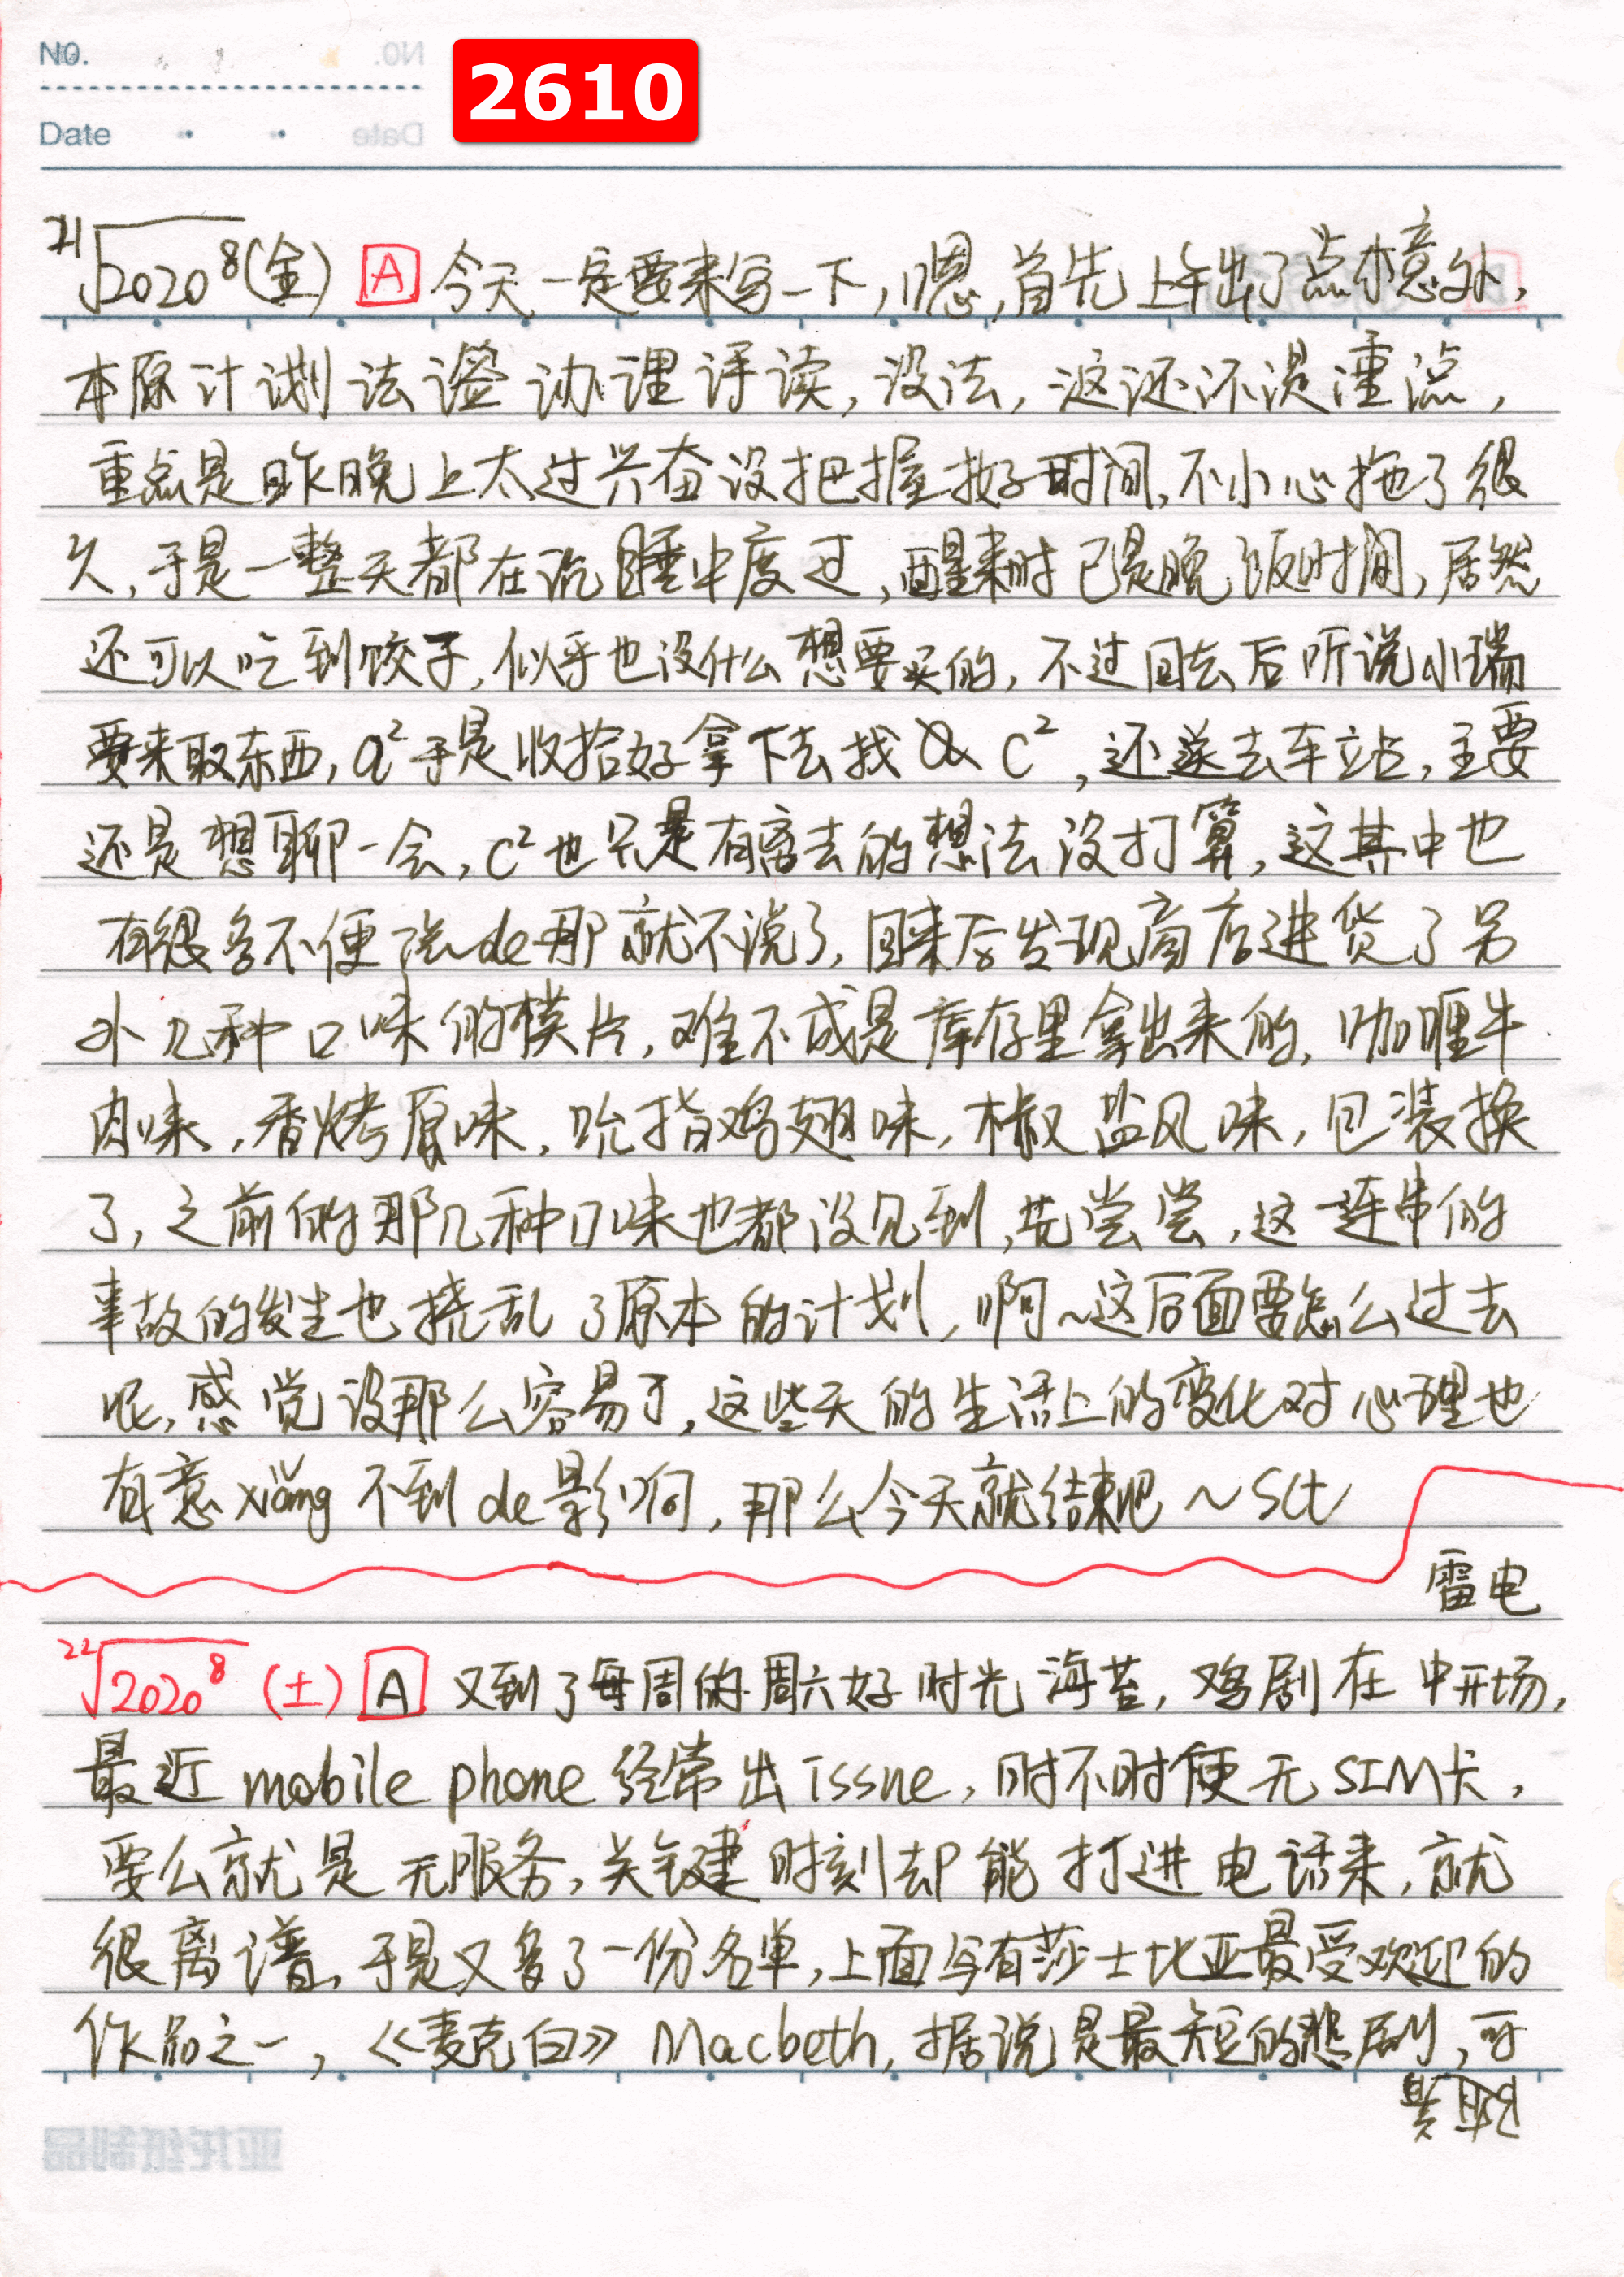 NO.
2610
Date
21√2020⁸(金) A 今天一定要来写一下,嗯,首先上午出了点小意外,
本原计划法 办理 读,没法,这还不是重点,
重点是昨晚上太过兴奋没把握好时间,不小心拖了很
久,于是一整天都在沉睡中度过,醒来时已是晚饭时间,居然
还可以吃到饺子,似乎也没什么想要买的,不过回去后听说小瑞
要来取东西,a²于是收拾好拿下去找 C²,还送去车站,主要
还是想聊一会,C²也只是有离去的想法没打算,这其中也
有很多不便 de那就不说了,回来后发现商店进货了另
外几种口味的 片,难不成是库存里拿出来的,咖喱牛
肉味,香烤原味,吮指鸡翅味,椒盐风味,包装换
了,之前的那几种口味也都没见到,先尝尝,这一连串的
事故的发生也挠乱了原本的计划,啊~这后面要怎么过去
呢,感觉没那么容易了,这些天的生活上的变化对心理也
有意xiǎng不到de影响,那么今天就结束吧~Sct
雷电
22√2020⁸(土) A 又到了每周的周六好时光海苔,鸡剧在中开场,
最近mobile phone经常出issue,时不时便无SIM卡,
要么就是无服务,关键时刻却能打进电话来,就
很离谱,于是又多了一份名单,上面写有莎士比亚最受欢迎的
作品之一,《麦克白》Macbeth,据说是最短的悲剧,可
亚托纸制品